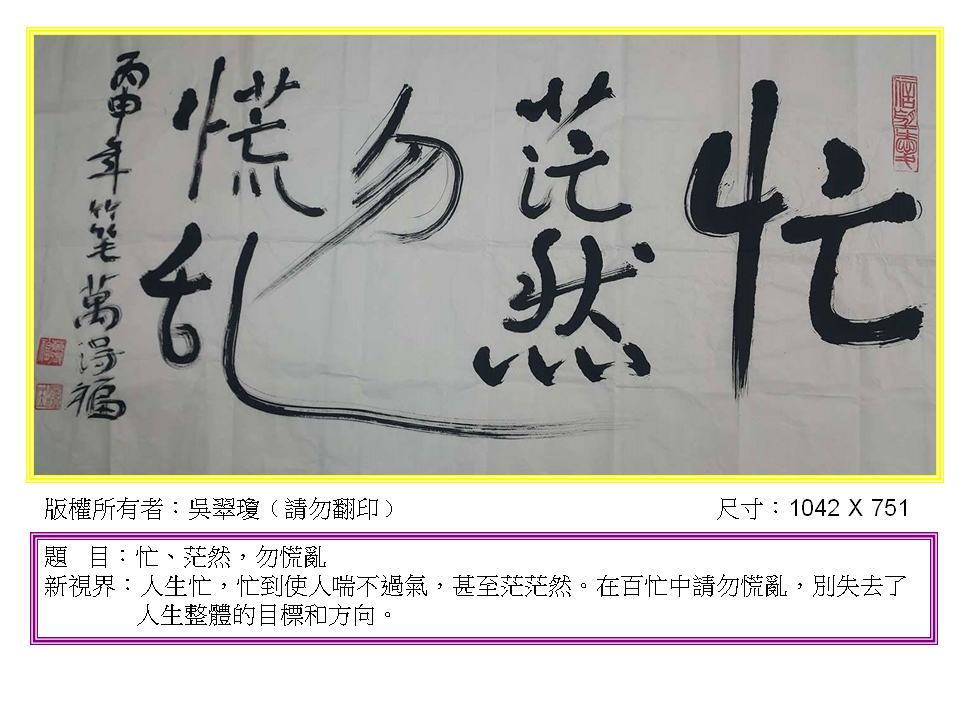 忙
茫然
勿
慌乱
丙申年竹笔萬得福
版權所有者：吳翠瓊（請勿翻印）
尺寸：1042 X 751
題 目：忙、茫然，勿慌亂
新視界：人生忙，忙到使人喘不過氣，甚至茫茫然。在百忙中請勿慌亂，別失去了
人生整體的目標和方向。